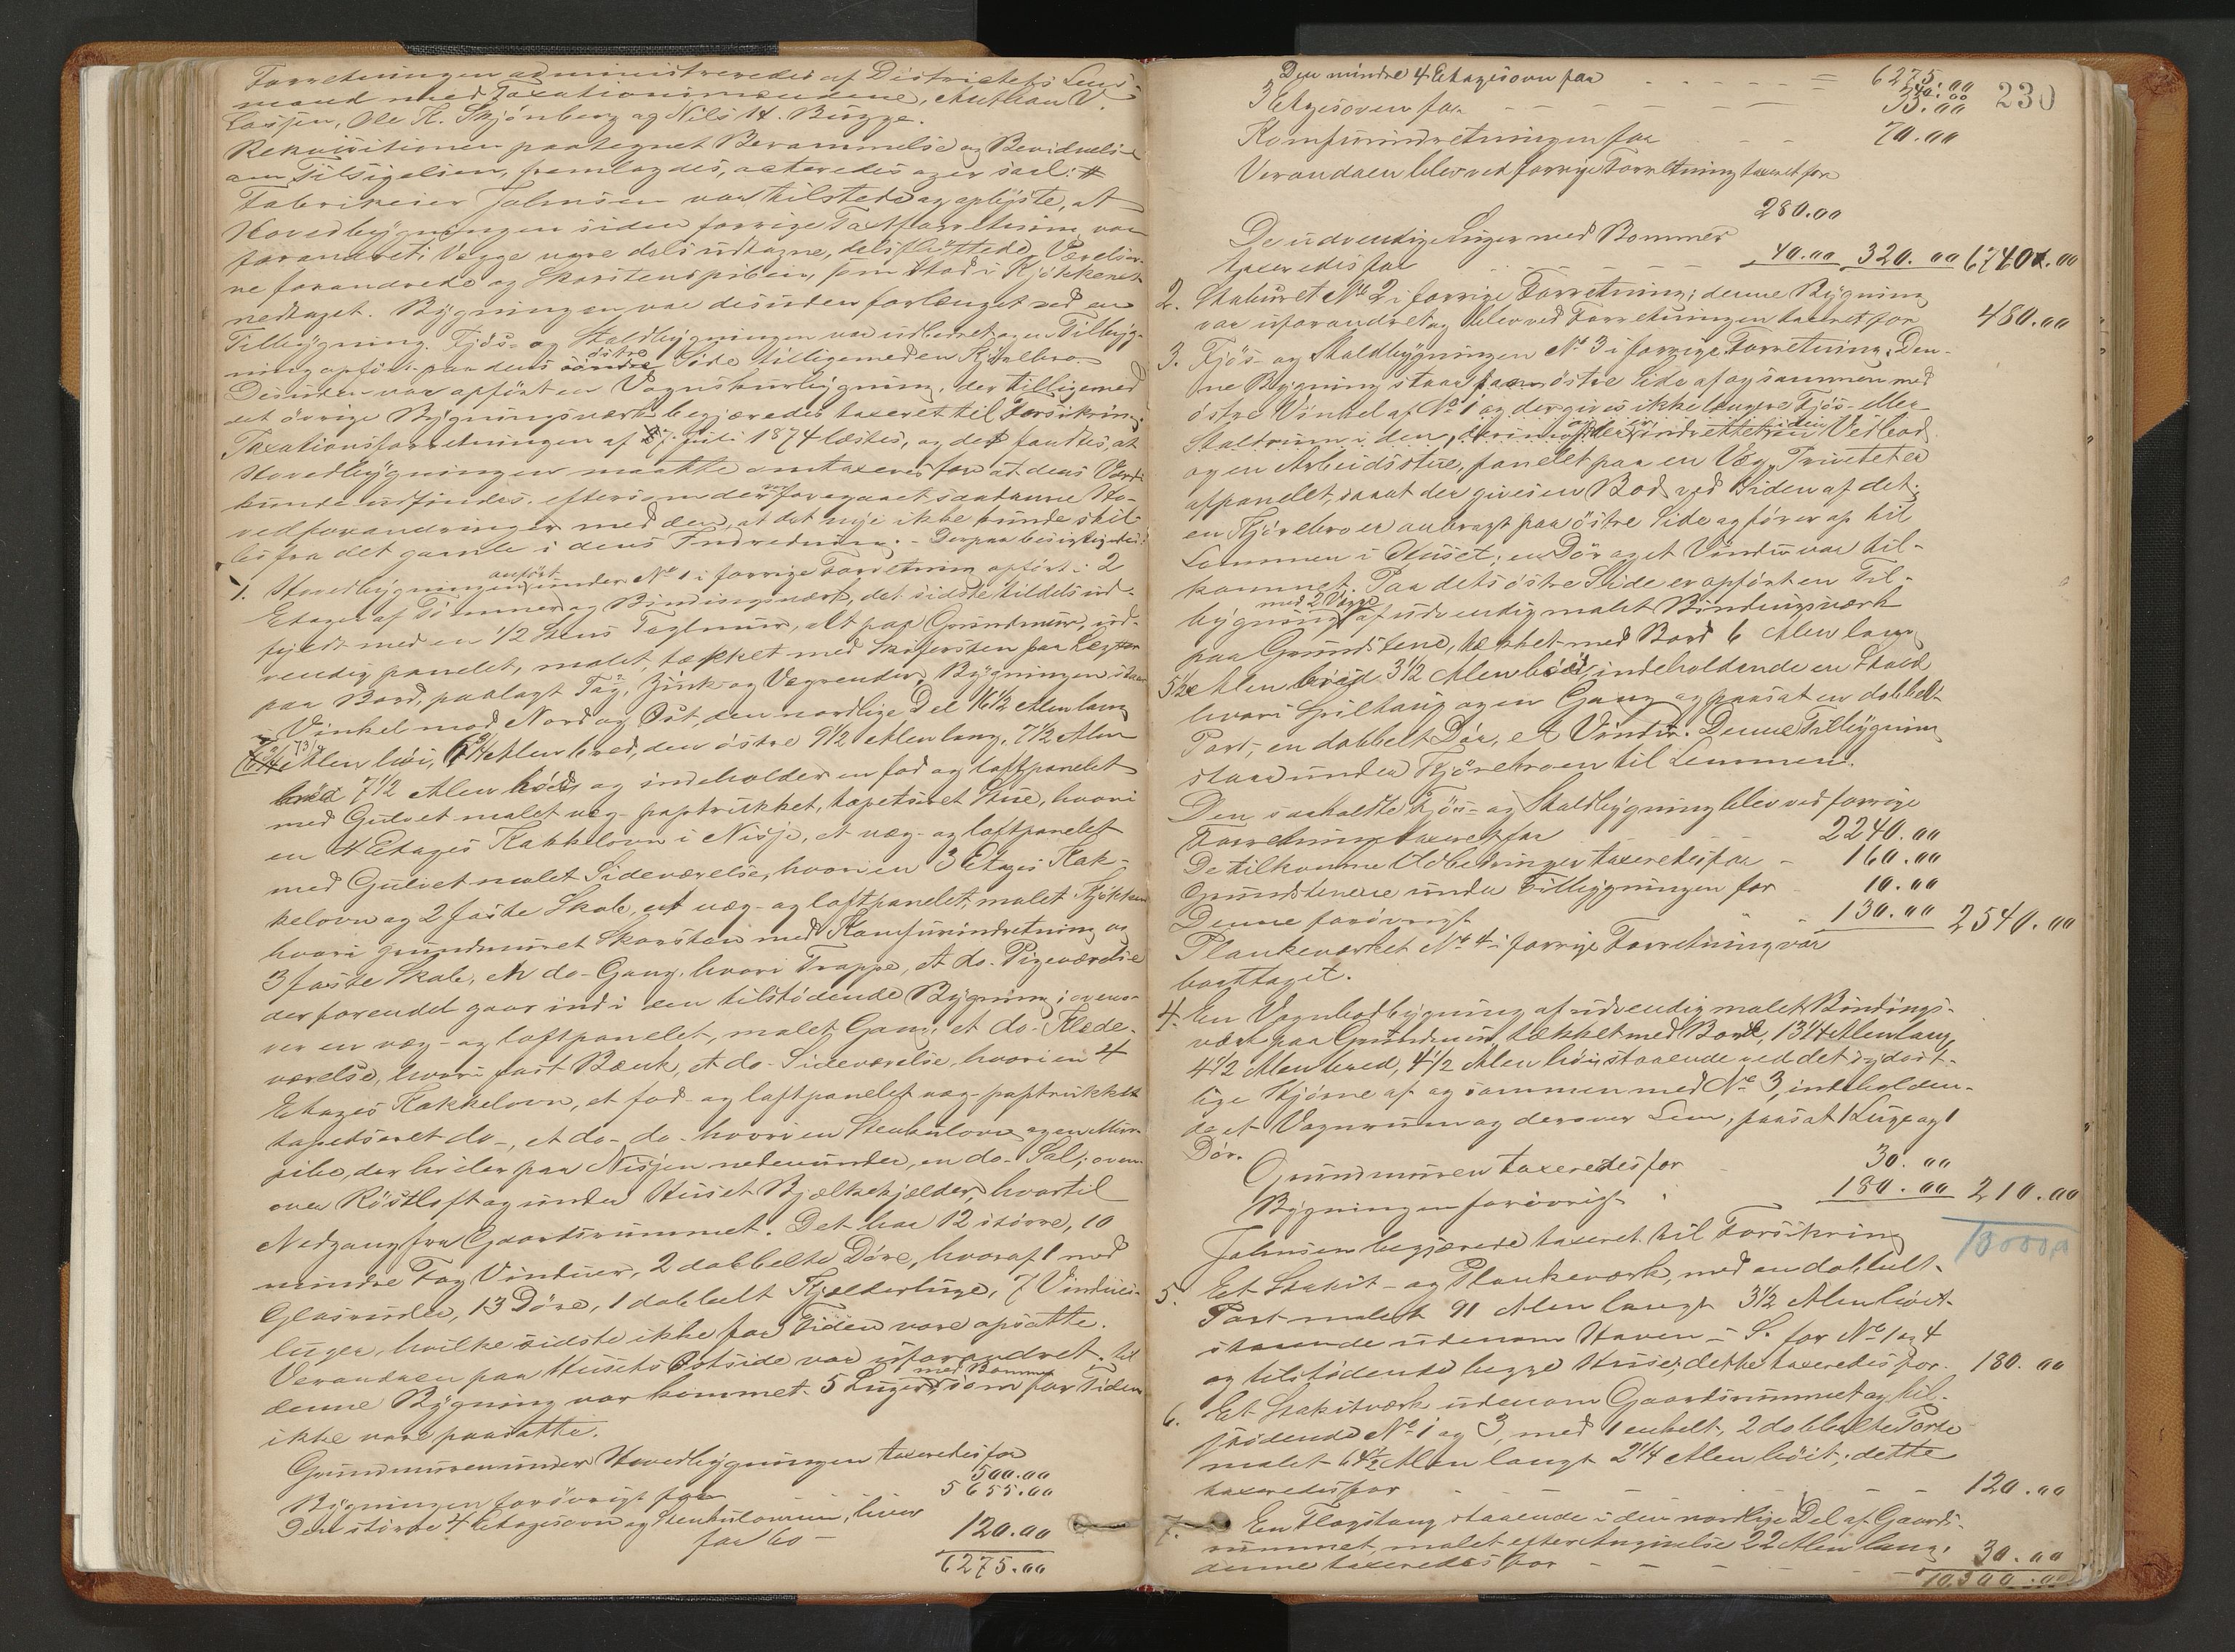 Forretningen administreredes af Districtets Lens-
mand med Taxationsmændene, Anthan V.
Lassen, Ole K. Skjönberg og Nils H. Bugge.
Rekvisitionen paategnet Berammelse og Bevidnelse
om Tilsigelsen, fremlagdes, acteredes og er saal: #
Fabrikeier Johnsen var tilstede og oplyste, at
Hovedbygningen siden forrige Taxtforretning var
forandret; Vægge vare dels udtagne, dels flyttede, Værelser-
ne forandrede og Skorstenspiben, som stod i Kjökkenet
nedtaget. Bygningen var desuden forlænget ved en
Tilbygning. Fjös- og Staldbygningen var udbedret og en Tilbyg-
ning opfört paa dens söndre östre Side tilligemed en Kjörebro.
Desuden var opfört en Vognskurbygning, der tilligemed
det övrige Bygningsværk begjæredes taxeret til Forsikring.
Taxationsforretningen af 7 Juli 1874 læstes, og det fandtes, at
Hovedbygningen maatte omtaxeres for at dens Værdi
kunde udfindes, eftersom der var foregaaet saadanne Ho-
vedforandringer med den, at det nye ikke kunde skil-
les fra det gamle i dens Indredning. - Derpaa besigtigedes:
1. Hovedbygningen anfört under No 1 i forrige Forretning opfört i 2
Etager af Tömmer og Bindingsværk, det sidste tildels ud-
fyldt med en 1/2 Stens Teglmur, alt paa Grundmur, ud-
vendig panelet, malet, tækket med Skifersten paa Lægter
paa Bord, paalagt Tag, Zink- og Vegrender. Bygningen staar
i Vinkel mod Nord og Öst, den nordlige Del 16 1/2 Alen lang
7 3/4 Alen höi, 6 3/4 Alen bred, den östre 9 1/2 Alen lang, 7 1/2 Alen
bred 7 1/2 Alen höi og indeholder en fod og loftpanelet
med Gulvet malet væg- paptrukket, tapetseret Stue, hvori
en 4 Etages Kakkelovn i Nisje, et væg- og loftpanelet
med Gulvet malet Sideværelse, hvori en 3 Etages Kak-
kelovn og 2 faste Skab, et væg- og loftpanelet, malet Kjökken
hvori grundmuret Skorsten med Komfurindretning og
3 faste Skab, en do- Gang, hvori Trappe, et do- Pigeværelse
der forendel gaar ind i den tilstödende Bygning; oveno-
ver en væg- og loftpanelet, malet Gang, et do- Klæde-
værelse, hvori fast Bænk, et do- Sideværelse, hvori en 4
Etages Kakkelovn, et fod- og loftpanelet væg- paptrukket
tapetseret do-, et do- do- hvori en Stenkulovn og en Mur-
pibe, der hviler paa Nisjen nedenunder, en do- Sal; oven-
over Röstloft og under Huset Bjælkekjelder, hvortil
Nedgang fra Gaardsrummet. Det har 12 större, 10
mindre Fag Vinduer, 2 dobbelte Döre, hvoraf 1 med
Glasruder, 13 Döre, 1 dobbelt Kjelderluge, 7 Vindues-
luger, hvilke sidste ikke for Tiden vare opsatte.
Verandaen paa Husets Östside var uforandret, til
denne Bygning var kommet 5 Luger med Bommer, som for Tiden
ikke vare paasatte.
Grundmuren under Hovedbygningen taxeredes for
500.00
Bygningen forövrigt for 5655.00
Den större 4 Etagesovn og Stenkulovnen, hver
for 60- 120.00
6275.00
230
6275.00
Den mindre 4 Etagesovn for 40.00
3 Etagesovn for 35.00
Komfurindretningen for 70.00
Verandaen blev ved forrige Forretning taxeret for
280.00
De udvendige Luger med Bommer
taxeredes for 40.00 320.00 6740.00
2. Staburet No 2 i forrige Forretning; denne Bygning
var uforandret og blev ved Forretningen taxeret for 480.00
3. Fjös- og Staldbygningen No 3 i forrige Forretning. Den-
ne Bygning staar paa östre Side af og sammen med
östre Vinkel af No 1 og der gives ikke længere Fjös- eller
Staldrum i den, men der er indrettet i den Vedbod
og en Arbeidsstue, panelet paa en Væg. Privetet er
afpanelet, saaat der gives en Bod ved Siden af det;
en Kjörebro er anbragt paa östre Side og förer op til
Lemmen i Huset; en Dör og et Vindu var til-
kommet. Paa dets östre Side er opfört en Til-
bygning med 2 Vægge af udvendig malet Bindingsværk
paa Grundstene, tækket med Bord 6 Alen lang
5 1/2 Alen bred 3 1/2 Alen höi, indeholdende en Stald
hvori Spiltaug og en Gang og paasat en dobbelt
Port, en dobbelt Dör, et Vindu. Denne Tilbygning
staar under Kjörebroen til Lemmen.
Den saakaldte Fjös- og Staldbygning blev ved forrige
Forretning taxeret for 2240.00
De tilkomne Udbedringer taxeredes for 160.00
Grundstenene under Tilbygningen for 10.00
Denne forövrigt 130.00 2540.00
Plankeværket No 4 i forrige Forretning var
borttaget.
4. En Vognbodbygning af udvendig malet Bindings-
værk paa Grundmur, tækket med Bord, 13 1/4 Alen lang
4 1/2 Alen bred, 4 1/2 Alen höi staaende ved det sydöst-
lige Hjörne af og sammen med No 3, indeholden-
de et Vognrum og derover Lem, paasat 1 Luge og 1
Dör.
Grundmuren taxeredes for 30.00
Bygningen forövrigt 180.00 210.00
Johnsen begjærede taxeret til Forsikring
5. Et Stakit- og Plankeværk, med en dobbelt
Port malet 91 Alen langt 3 1/2 Alen höit
staaende udenom Haven i S. for No 1 og 4
og tilstödende begge Huse; dette taxeredes for 180.00
6. Et Stakitværk udenom Gaardsrummet og til-
stödende No 1 og 3, med 1 enkelt, 2 dobbelte Porte
malet 64 1/2 Alen langt 2 1/4 Alen höit; dette
taxeredes for 120.00
7. En Flagstang staaende i den nordlige Del af Gaards-
rummet, malet efter Angivelse 22 Alen lang,
denne taxeredes for 30.00
10,300.00